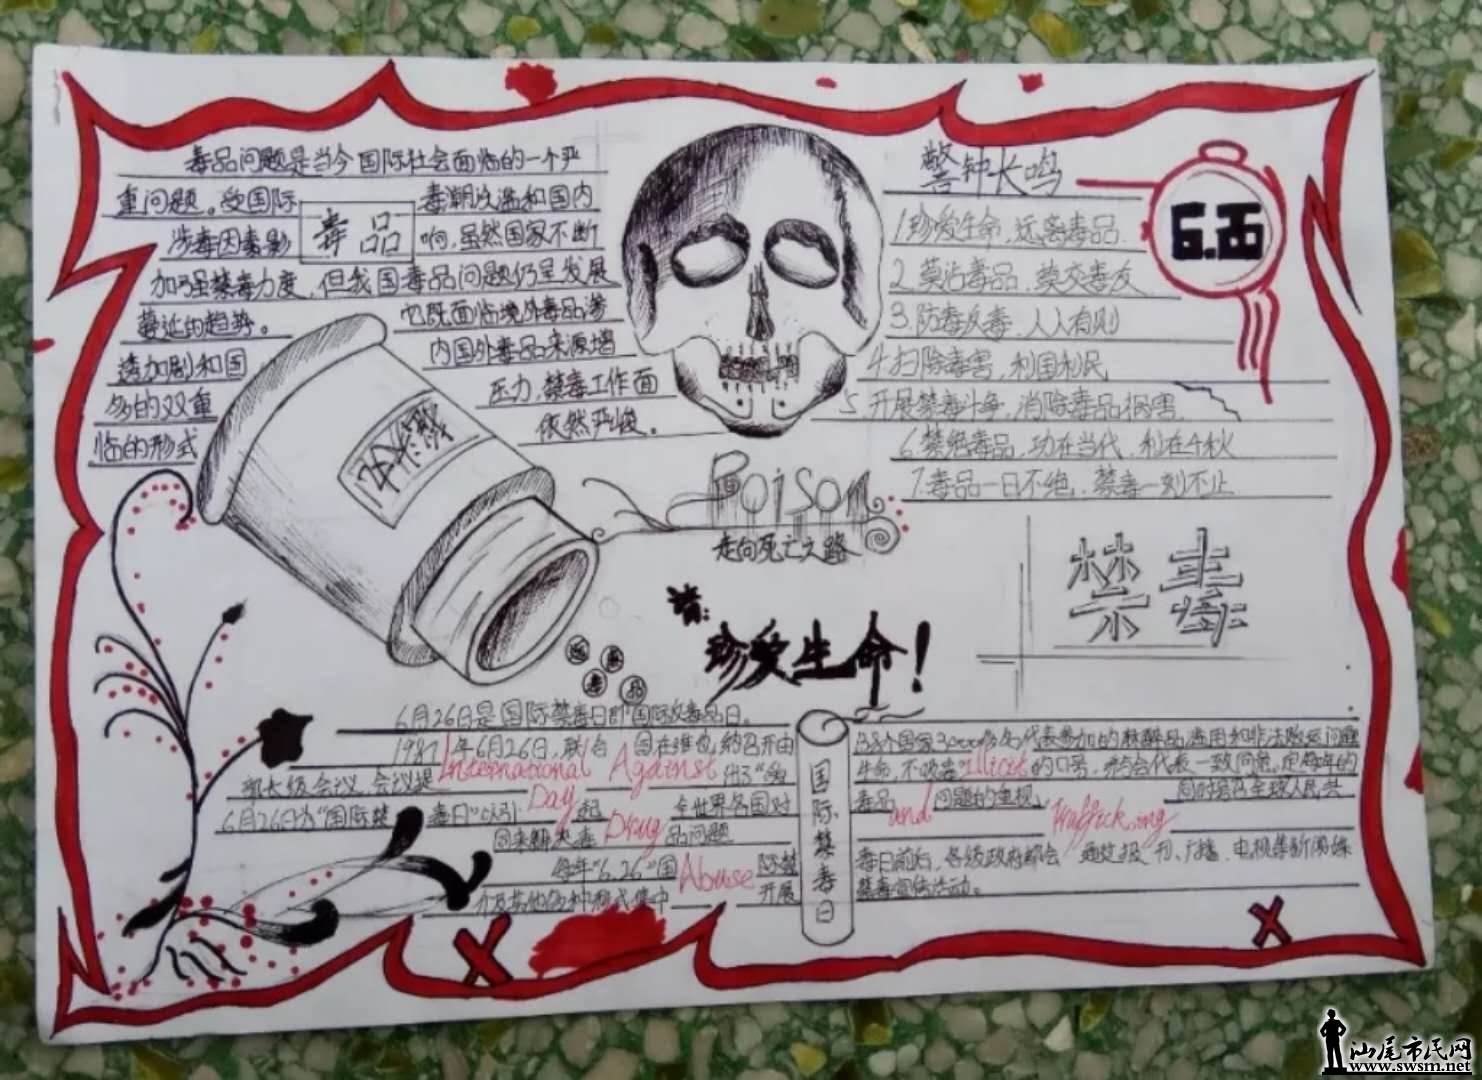 毒品问题是当今国际社会面临的一个严
重问题。受国际毒潮泛滥和国内
涉毒因素影响,虽然国家不断
毒品
加强禁毒力度,但我国毒品问题仍呈发展
蔓延的趋势。它既面临境外毒品渗
透加剧和国内国外毒品来源增
多的双重压力,禁毒工作面
临的形式依然严峻。
警钟长鸣
6.26
1.珍爱生命,远离毒品.
2.莫沾毒品,莫交毒友
3.防毒反毒,人人有则
4.扫除毒害,利国利民
5.开展禁毒斗争,消除毒品祸害.
6.禁绝毒品,功在当代,利在千秋
7.毒品一日不绝,禁毒一刻不止
Poison
走向死亡之路
禁毒
请:
珍爱生命!
远
离
毒
品
6月26日是国际禁毒日即国际反毒品日。
1987年6月26日,联合国在维也纳召开由
138个国家3000名代表参加的麻醉品滥用和非法贩运问题
部长级会议,会议提出了“爱
生命,不吸毒”的口号,与会代表一致同意,定每年的
6月26日为“国际禁毒日”以引起全世界各国对
毒品问题的重视,同时号召全球人民共
同来解决毒品问题
每年“6.26”国际禁
毒日前后,各级政府都会通过报刊、广播、电视等新闻媒
介及其他各种形式集中开展
禁毒宣传活动。
International
Day
Against
Drug
Abuse
and
Illicit
Trafficking
国际禁毒日
汕尾市民网
www.swsm.net